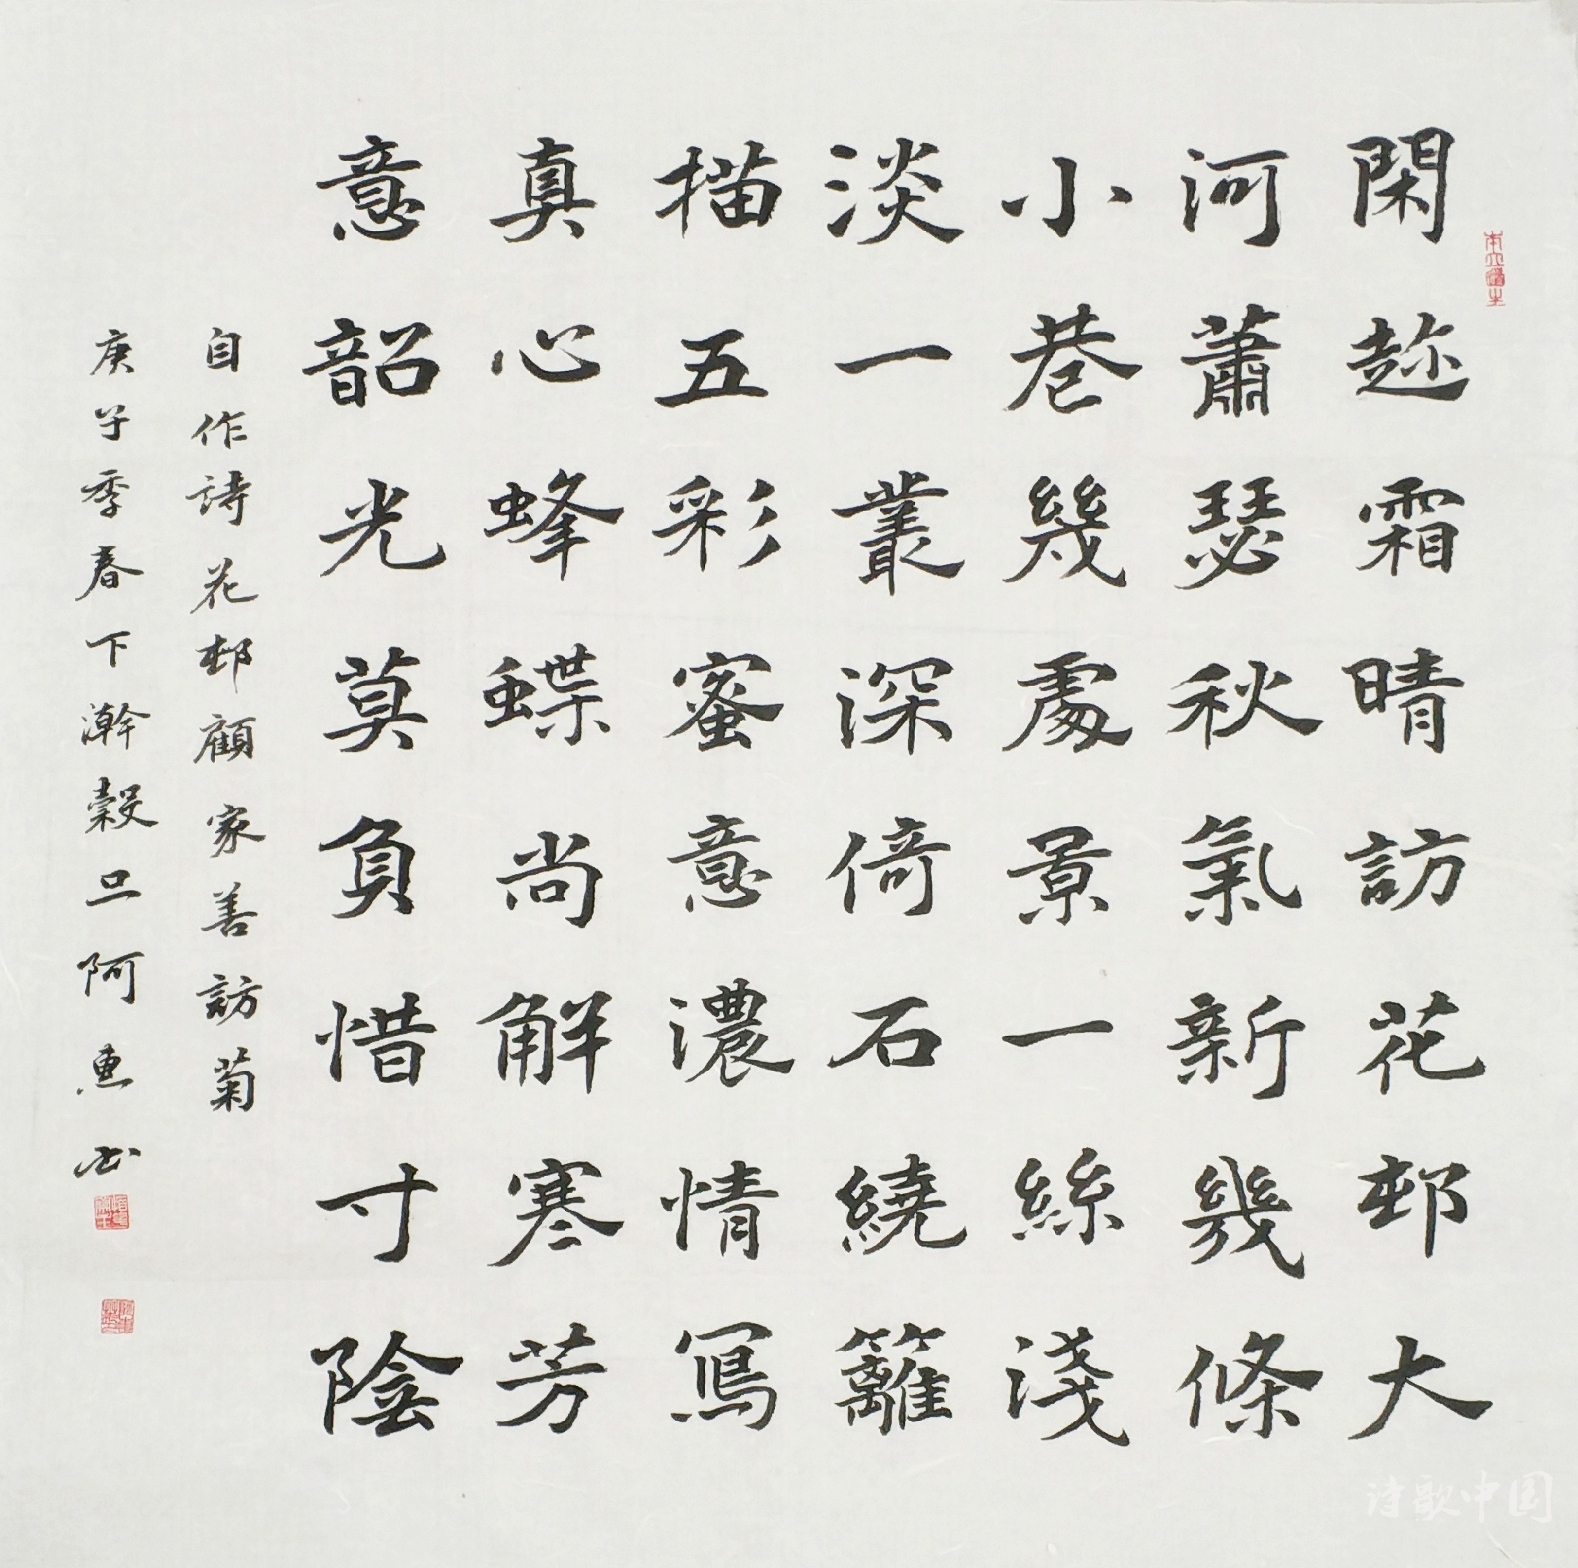 閑趂霜晴訪花邨大
河蕭瑟秋氣新幾條
小巷幾處景一絲淺
淡一叢深倚石繞籬
描五彩蜜意濃情寫
真心蜂蝶尚解寒芳
意韶光莫負惜寸陰
自作詩花邨顧家善訪菊
庚子季春下澣穀旦阿惠书
诗歌中国